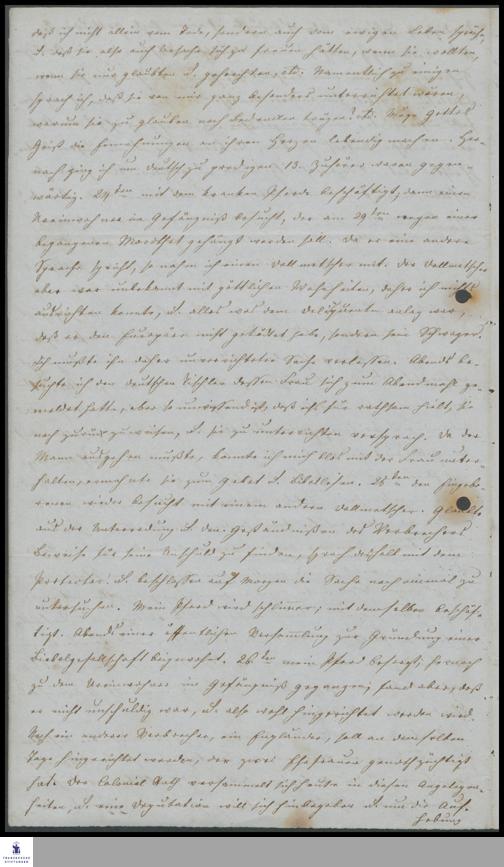 daß ich nicht allein vom Tode, sondern auch vom ewigen Leben spräche,
u. daß sie also auch Ursache sich zu freuen hätten, wenn sie wollten,
wenn sie nur glaubten u. gehorchten, etc. Namentlich zu einigen
sprach ich, daß sie von mir ganz besonders unterrichtet wären,
warum sie zu glauben noch Bedenken trügen? etc. Möge Gottes
Geist die Ermahnungen an ihren Herzen lebendig machen. Her-
nach ging ich um deutsch zu predigen 13 Zuhörer waren gegen-
wärtig. 24sten mit dem kranken Pferde beschäftigt, dann einen
Ureinwohner im Gefängniß besucht, der am 29sten wegen einer
begangenen Mordthat gehängt werden soll. Da er eine andere
Sprache spricht, so nahm ich einen Dollmetscher mit. Der Dollmetscher
aber war unbekannt mit göttlichen Wahrheiten, daher ich nichts
ausrichten konnte, u. alles was dem Delinquenten anlag war,
daß er den Europäer nicht getödtet habe, sondern sein Schwager.
Ich mußte ihn daher unverrichteter Sache verlassen. Abends be-
suchte ich den deutschen Tischler dessen Frau sich zum Abendmahl ge-
meldet hatte, aber so unwissend ist, daß ich's für rathsam hielt, sie
noch zurück zu weisen, u. sie zu unterrichten versprach. Da der
Mann ausgehen mußte, konnte ich mich blos mit der Frau unter-
halten, ermahnte sie zum Gebet u. Bibellesen. 25sten den Eingebo-
renen wieder besucht mit einem andern Dollmetscher. Glaubte
aus der Unterredung u. den Geständnißen des Verbrechers
Beweise für seine Unschuld zu finden, sprach deshalb mit dem
Protector u. beschlossen auf Morgen die Sache noch einmal zu
untersuchen. Mein Pferd wird schlimmer; mit demselben beschäf-
tigt. Abends einer öffentlichen Versammlung zur Gründung einer
Bibelgesellschaft beigewohnt. 26sten mein Pferd besorgt, hernach
zu dem Ureinwohner im Gefängniß gegangen; fand aber, daß
er nicht unschuldig war, u. also wohl hingerichtet werden wird.
Noch ein anderer Verbrecher, ein Engländer, soll an demselben
Tage hingerichtet werden, der zwei Ehefrauen genothzüchtigt
hat. Der Colonial Rath versammelt sich heute in diesen Angelegen-
heiten, u. eine Deputation will sich hinbegeben u. um die Auf-
hebung
FRANCKESCHE
STIFTUNGEN